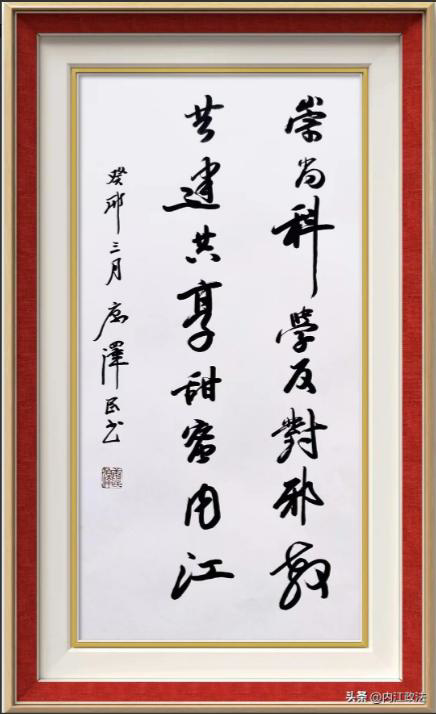 崇尚科學反對邪教
共建共享甜蜜内江
癸卯三月 澤民书
头条 @内江政法